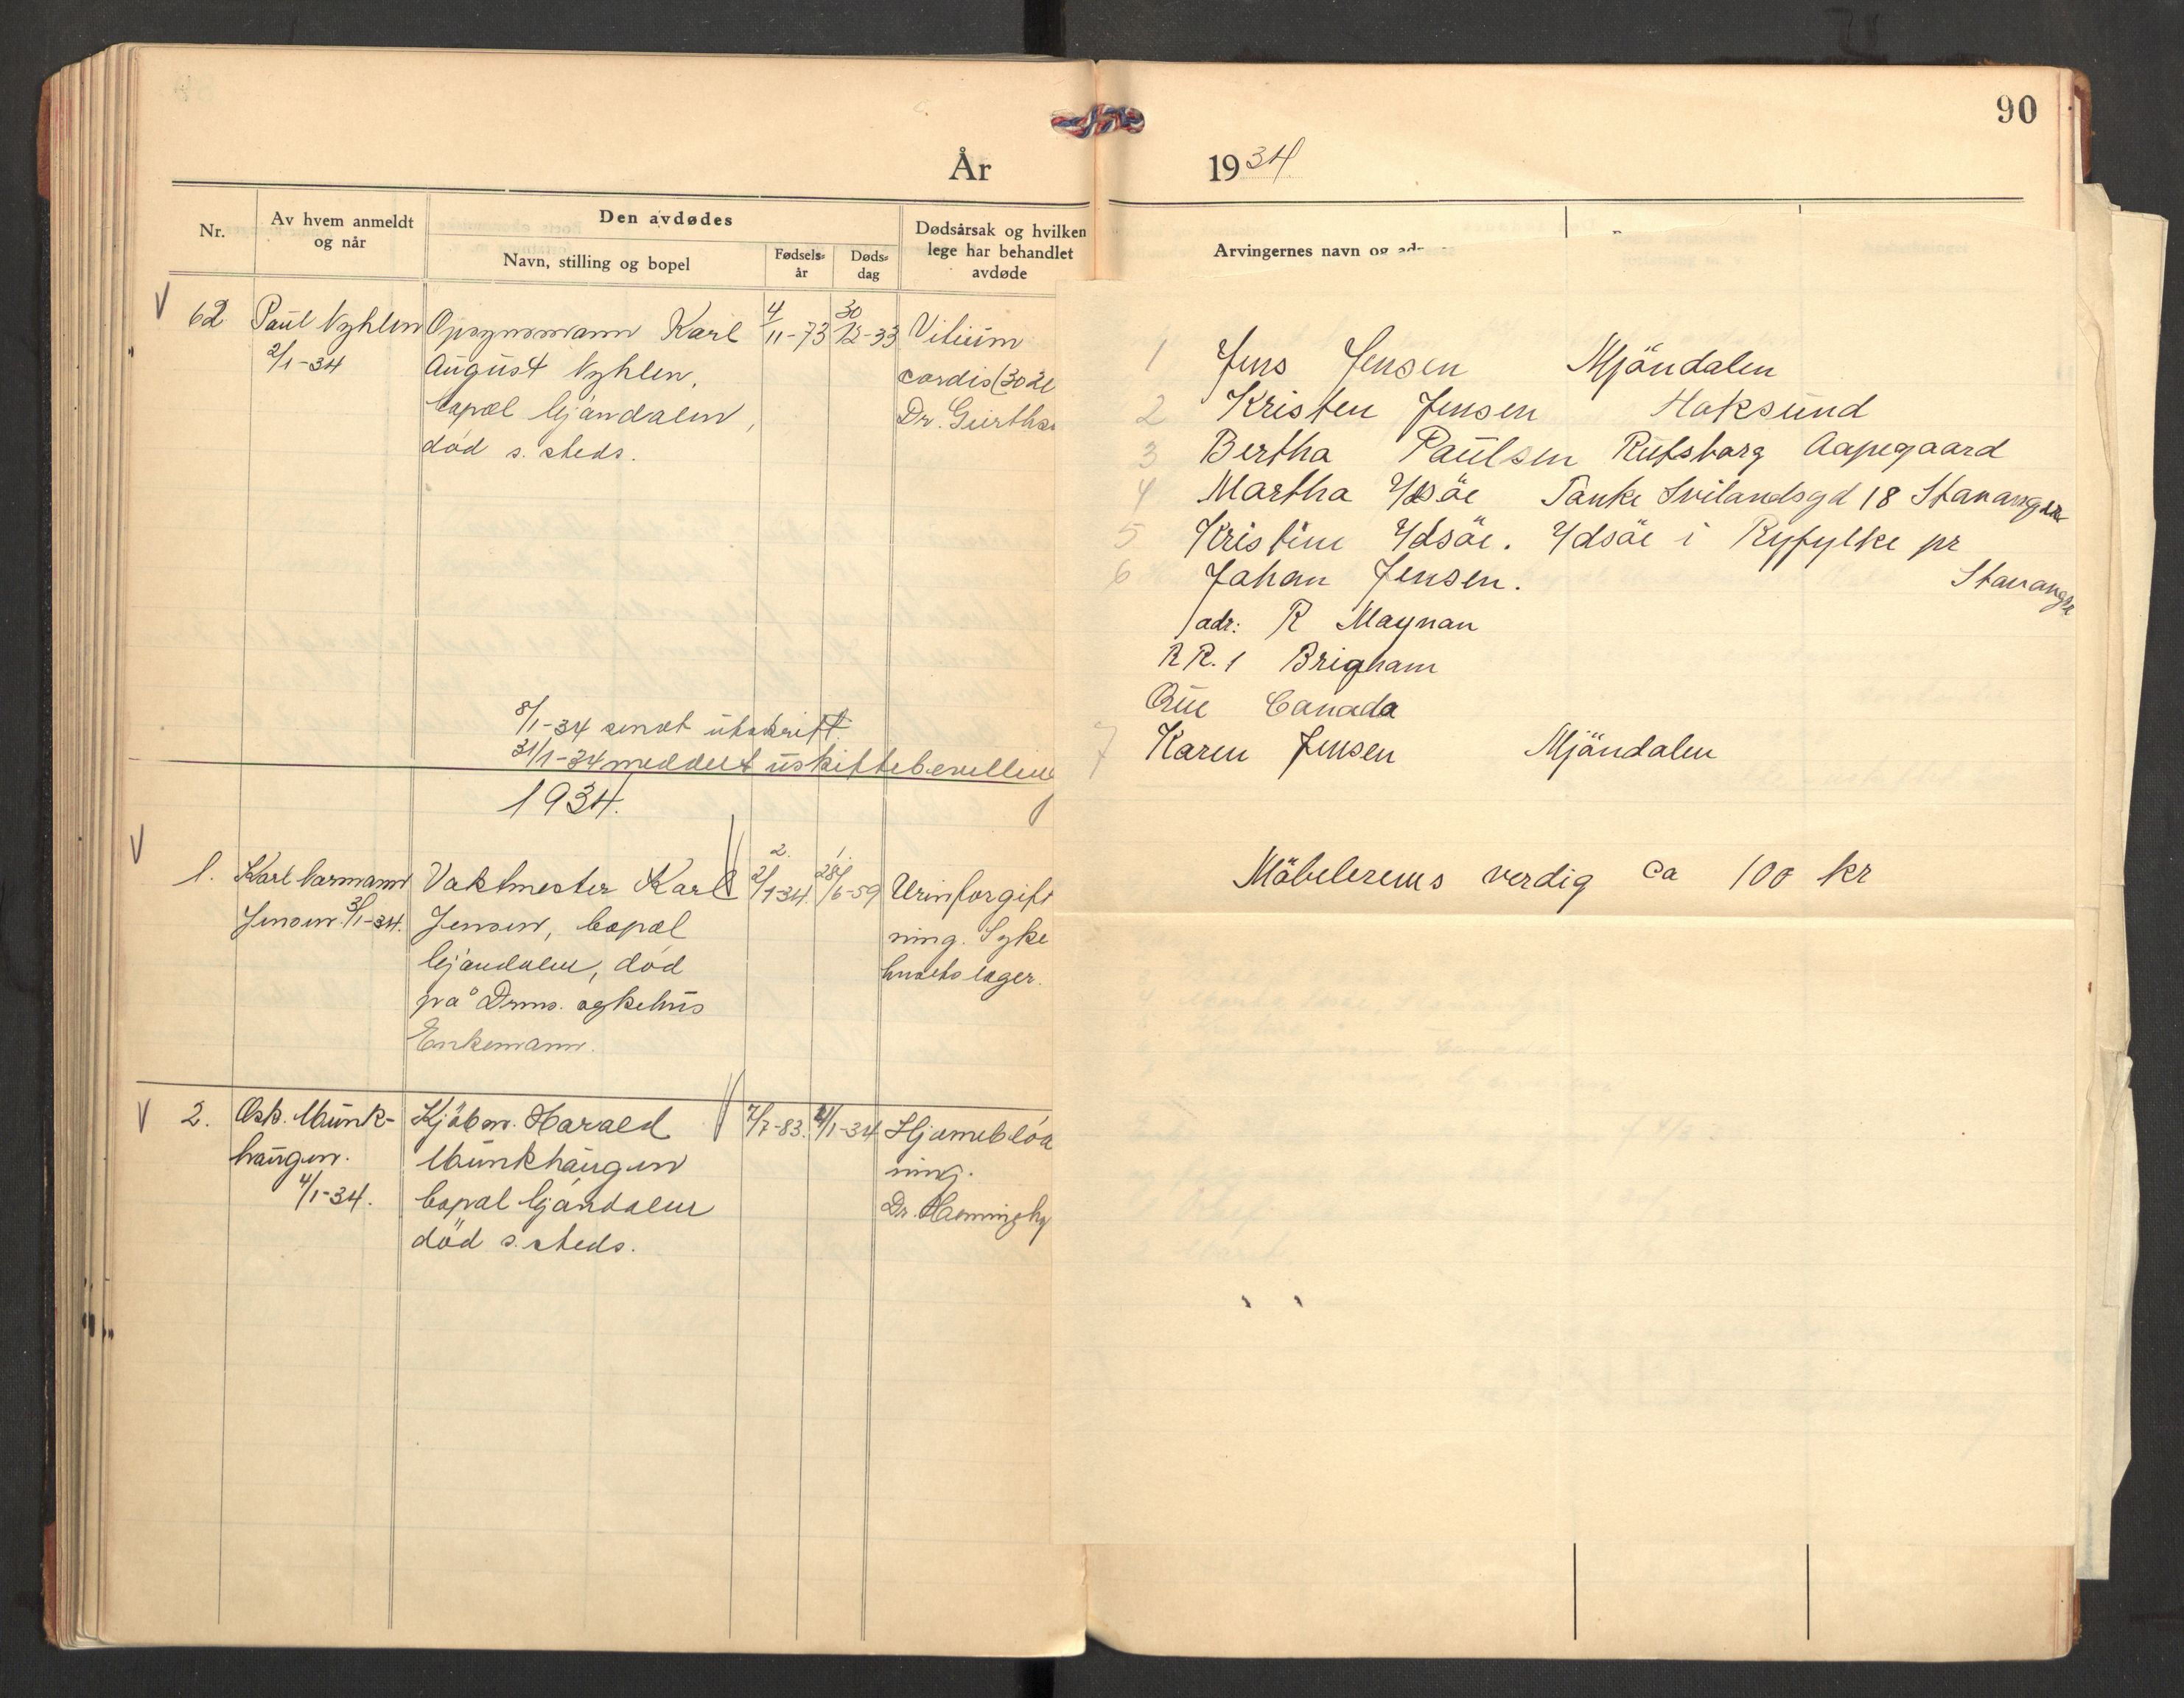 90
År 1934
Nr.
Av hvem anmeldt
og når
Den avdødes
Navn, stilling og bopel
Fødsels-
år
Døds-
dag
Dødsårsak og hvilken
lege har behandlet
avdøde
Arvingernes navn og adr
62 Paul Nyhlen Opsynsmann Karl 4/11-73 30/12-33 Vitium
2/1-34 August Nyhlen, cordis (30
bopæl Mjøndalen, Dr.
død s. steds.
8/1-34 sendt utskrift.
31/1-34 meddelt uskiftebevilling
1934.
1. Karl Normann Vaktmester Karl 2/1-34 28/6-59 Urinforgift
2. 1.
Jensen 3/1-34. Jensen, bopæl ning. Syke
Mjøndalen, død husets læger.
på Drms. sykehus
Enkemann.
2. Osk. Munk- Kjøbm. Harald 7/7-83. 4/1-34 Hjerneblød
haugen. Munkhaugen ning.
4/1-34. bopæl Mjøndalen Dr.
død s. steds.
1 Jens Jensen Mjöndalen
2 Kristen Jensen Hoksund
3 Bertha Paulsen Aapegaard
4 Martha Ydsöe Tanke Svilandsgd 18 Stavanger
5 Kristine Ydsöe. Ydsöe i Ryfylke pr
Stavanger
6 Johan Jensen.
adr: R Maynan
R R. 1 Brigham
Que Canada
7 Karen Jensen Mjöndalen
Möbelerens verdig ca 100 kr